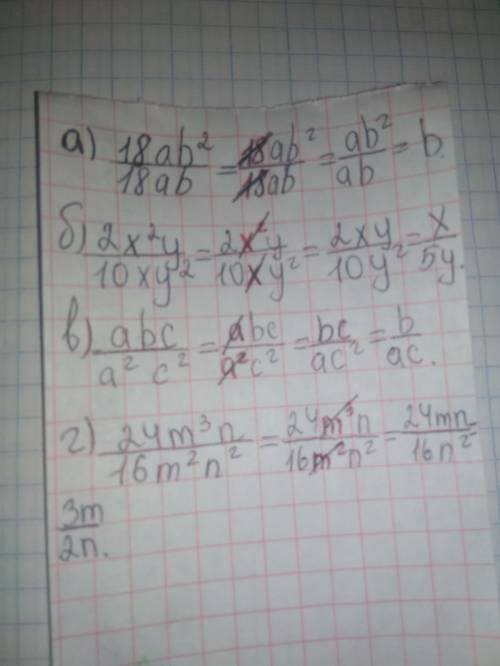 а) 18ab²/18ab = 18ab²/18ab = ab²/ab = b.
б) 2x²y/10xy² = 2x²y/10xy² = 2xy/10y² = x/5y.
в) abc/a² c² = abc/a²c² = bc/ac² = b/ac.
г) 24m³n/16m²n² = 24m³n/16m²n² = 24mn/16n²
3m/2n.